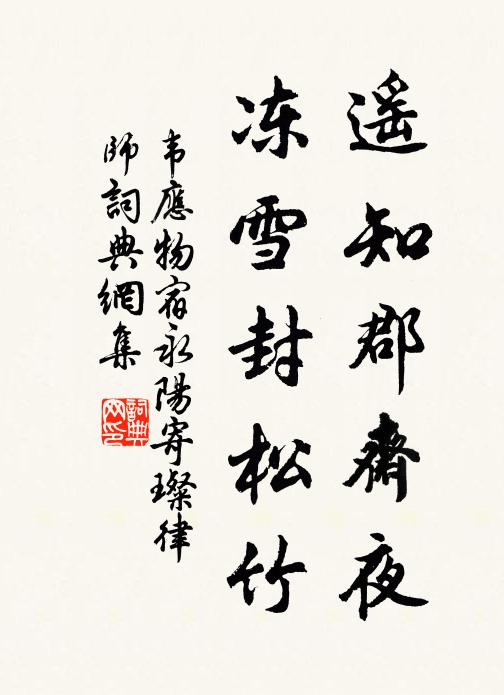 遥知郡斋夜
冻雪封松竹
韦應物宿永陽寄璨律
師詞典網集
詞典網印